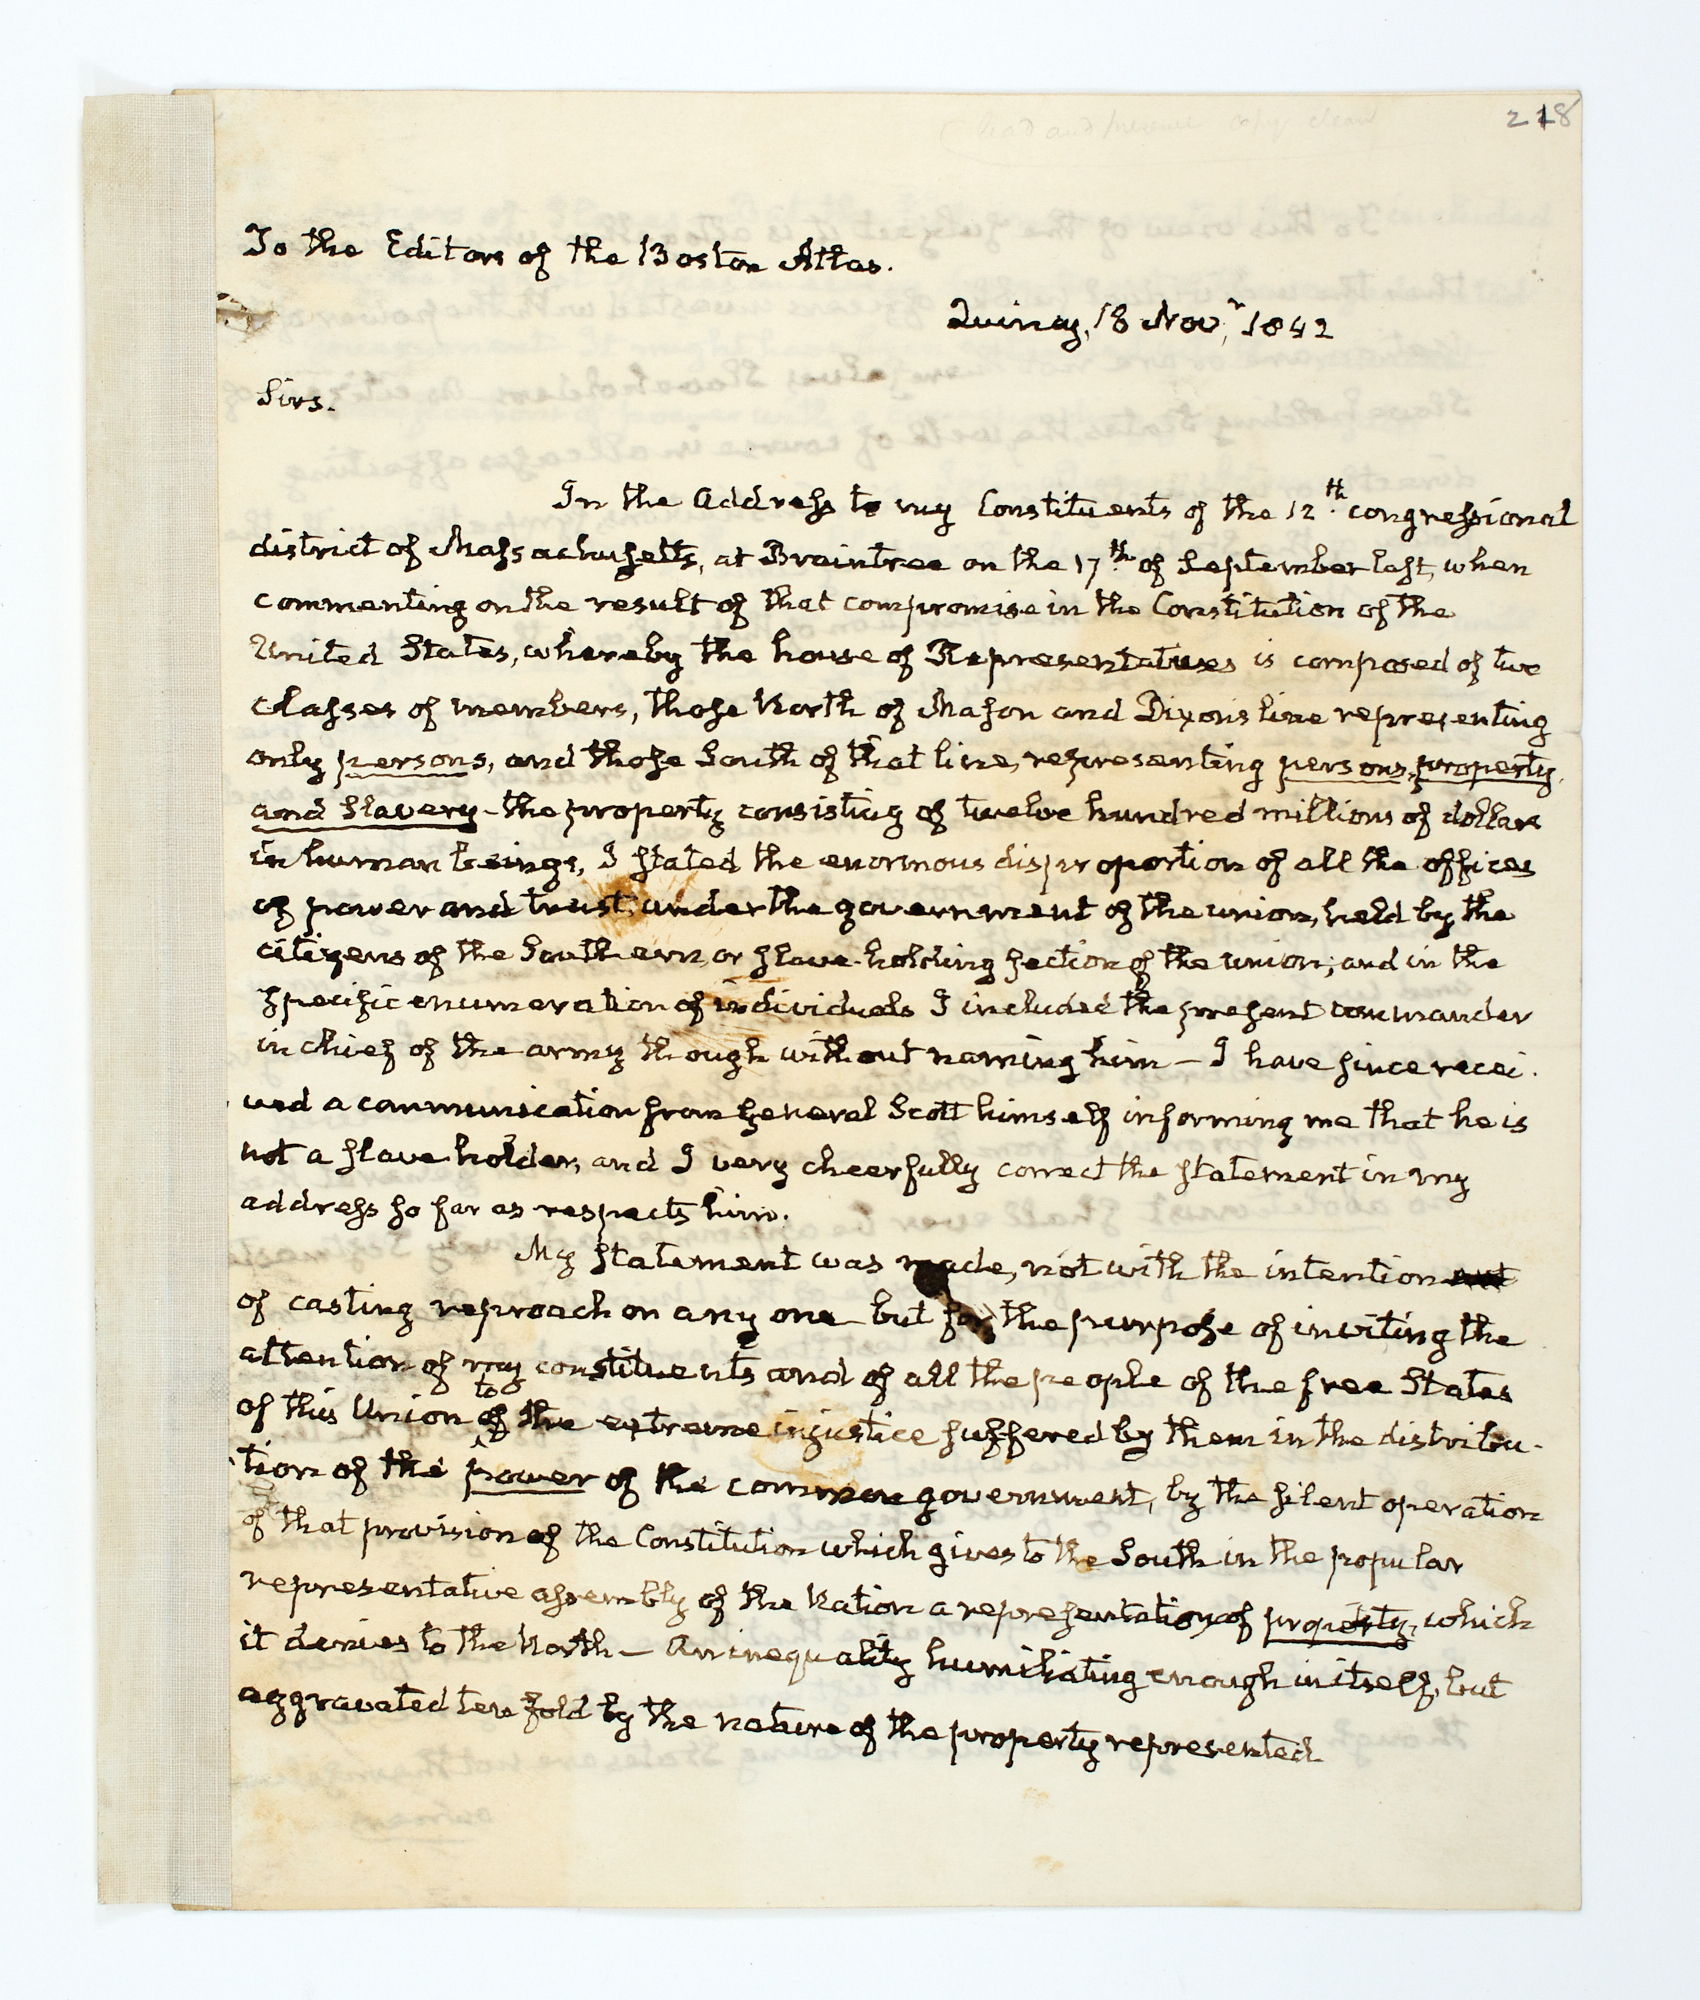 218
To the Editors of the Boston Atlas.
Quincy, 18 Nov.r 1842
Sirs.
In the Address to my Constituents of the 12th. congressional
district of Massachusetts, at Braintree on the 17th. of September last, when
commenting on the result of that compromise in the Constitution of the
United States, whereby the house of Representatives is composed of two
classes of members, those North of Mason and Dixons line representing
only persons, and those South of that line, representing persons, property,
and Slavery - the property consisting of twelve hundred millions of dollars
in human beings, I stated the enormous disproportion of all the offices
of power and trust, under the government of the union, held by the
citizens of the Southern, or slave-holding section of the union; and in the
specific enumeration of individuals I included the present commander
in chief of the army though without naming him — I have since recei-
ved a communication from General Scott himself informing me that he is
not a slave holder, and I very cheerfully correct the statement in my
address so far as respects him.
My statement was made, not with the intention
of casting reproach on any one but for the purpose of inviting the
attention of my constituents and of all the people of the free States
of this Union to of the extreme injustice suffered by them in the distribu-
tion of the power of the common government, by the silent operation
of that provision of the Constitution which gives to the South in the popular
representative assembly of the Nation a representation of property, which
it denies to the North — An inequality humiliating enough in itself, but
aggravated ten fold by the nature of the property represented